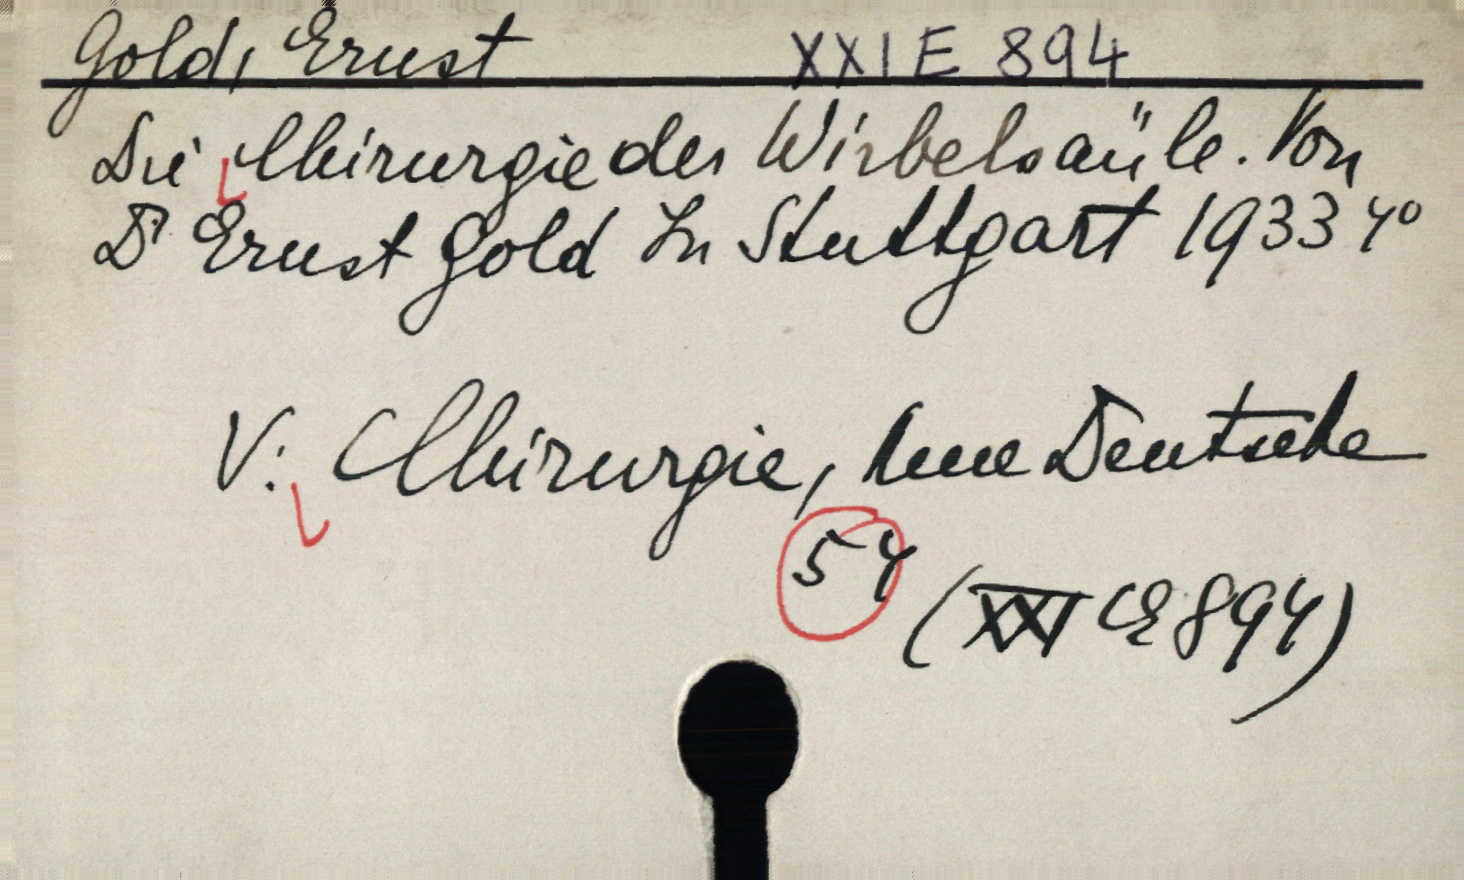 Gold, Ernst XXI E 894
Die Chirurgie der Wirbelsaüle. Von
Dr Ernst Gold In Stuttgart 1933 4º
V: Chirurgie, Neue Deutsche
54
(XXI E 894)